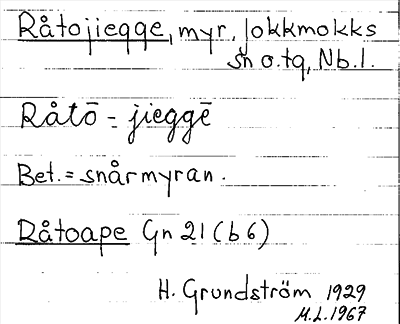 Råtojiegge, myr, Jokkmokks
sn o. tg, Nb. l.
Råtō - jieggē
Bet. = snårmyran.
Råtoape Gn 21 (b 6)
H. Grundström 1929
M.L. 1967